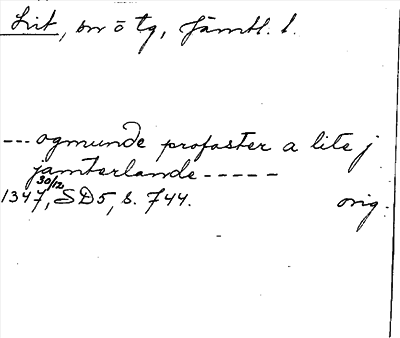 Lit, sn o tg, Jämtl. l.
--- ogmunde profaster a lite j
jamterlande -----
1347 30/12, SD5, s. 744. orig.